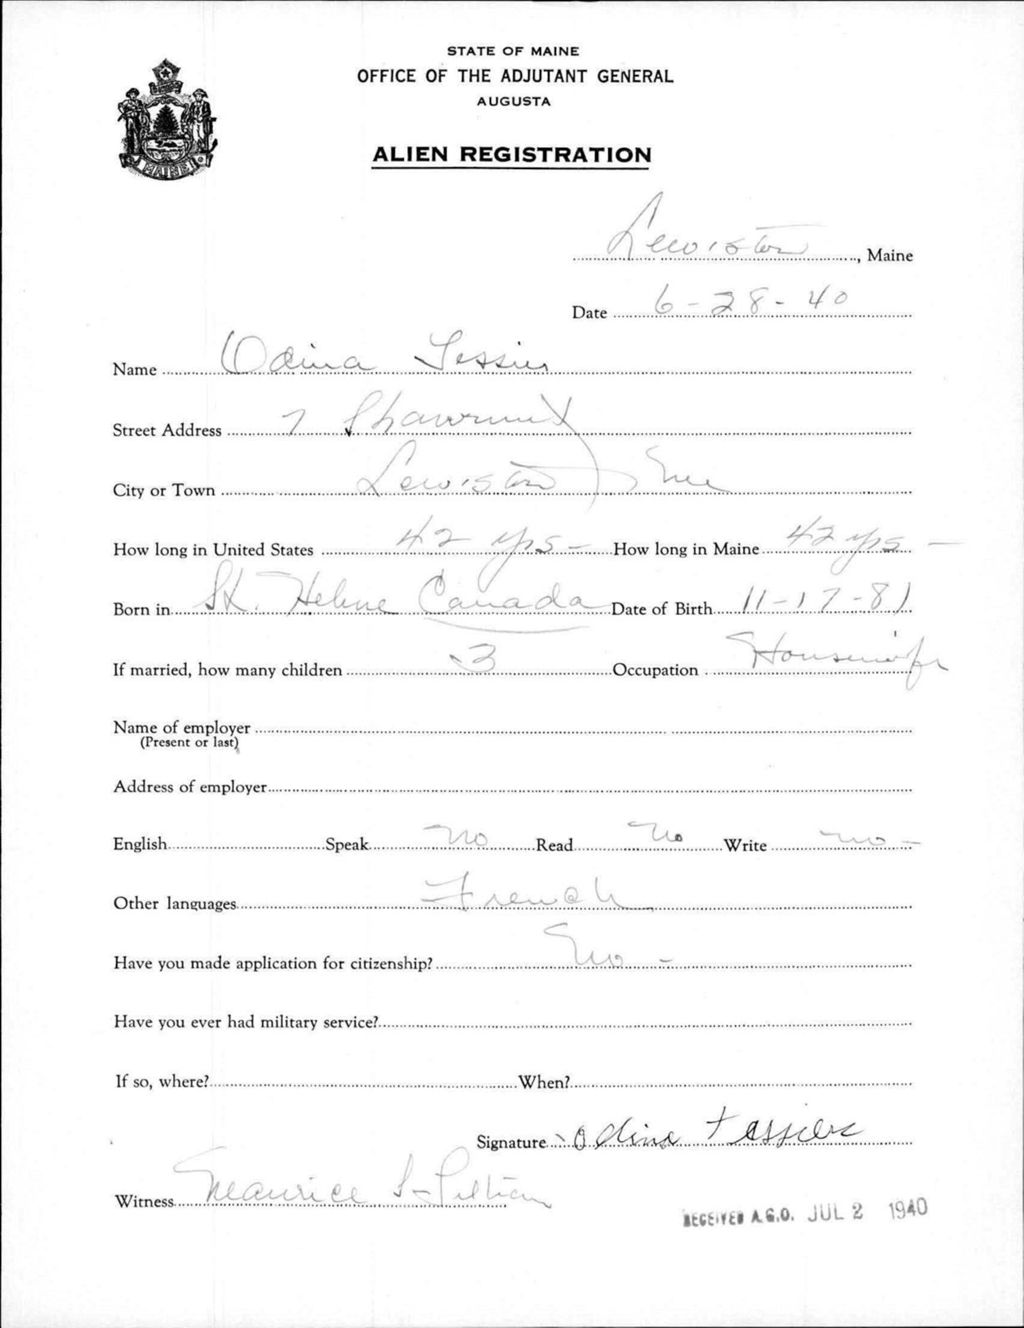 STATE OF MAINE
OFFICE OF THE ADJUTANT GENERAL
AUGUSTA
MAINE
ALIEN REGISTRATION
Lewiston, Maine
Date 6-28-40
Name Odina Tessier
Street Address 7 Shawmut
City or Town Lewiston, Me
How long in United States 42 yrs - How long in Maine 42 yrs -
Born in St. Helene Canada Date of Birth 11-17-81
If married, how many children 3 Occupation Housewife
Name of employer
(Present or last)
Address of employer
English Speak No Read No Write no -
Other languages French
Have you made application for citizenship? No -
Have you ever had military service?
If so, where? When?
Signature Odina Tessier
Witness Maurice
RECEIVED A.G.O. JUL 2 1940